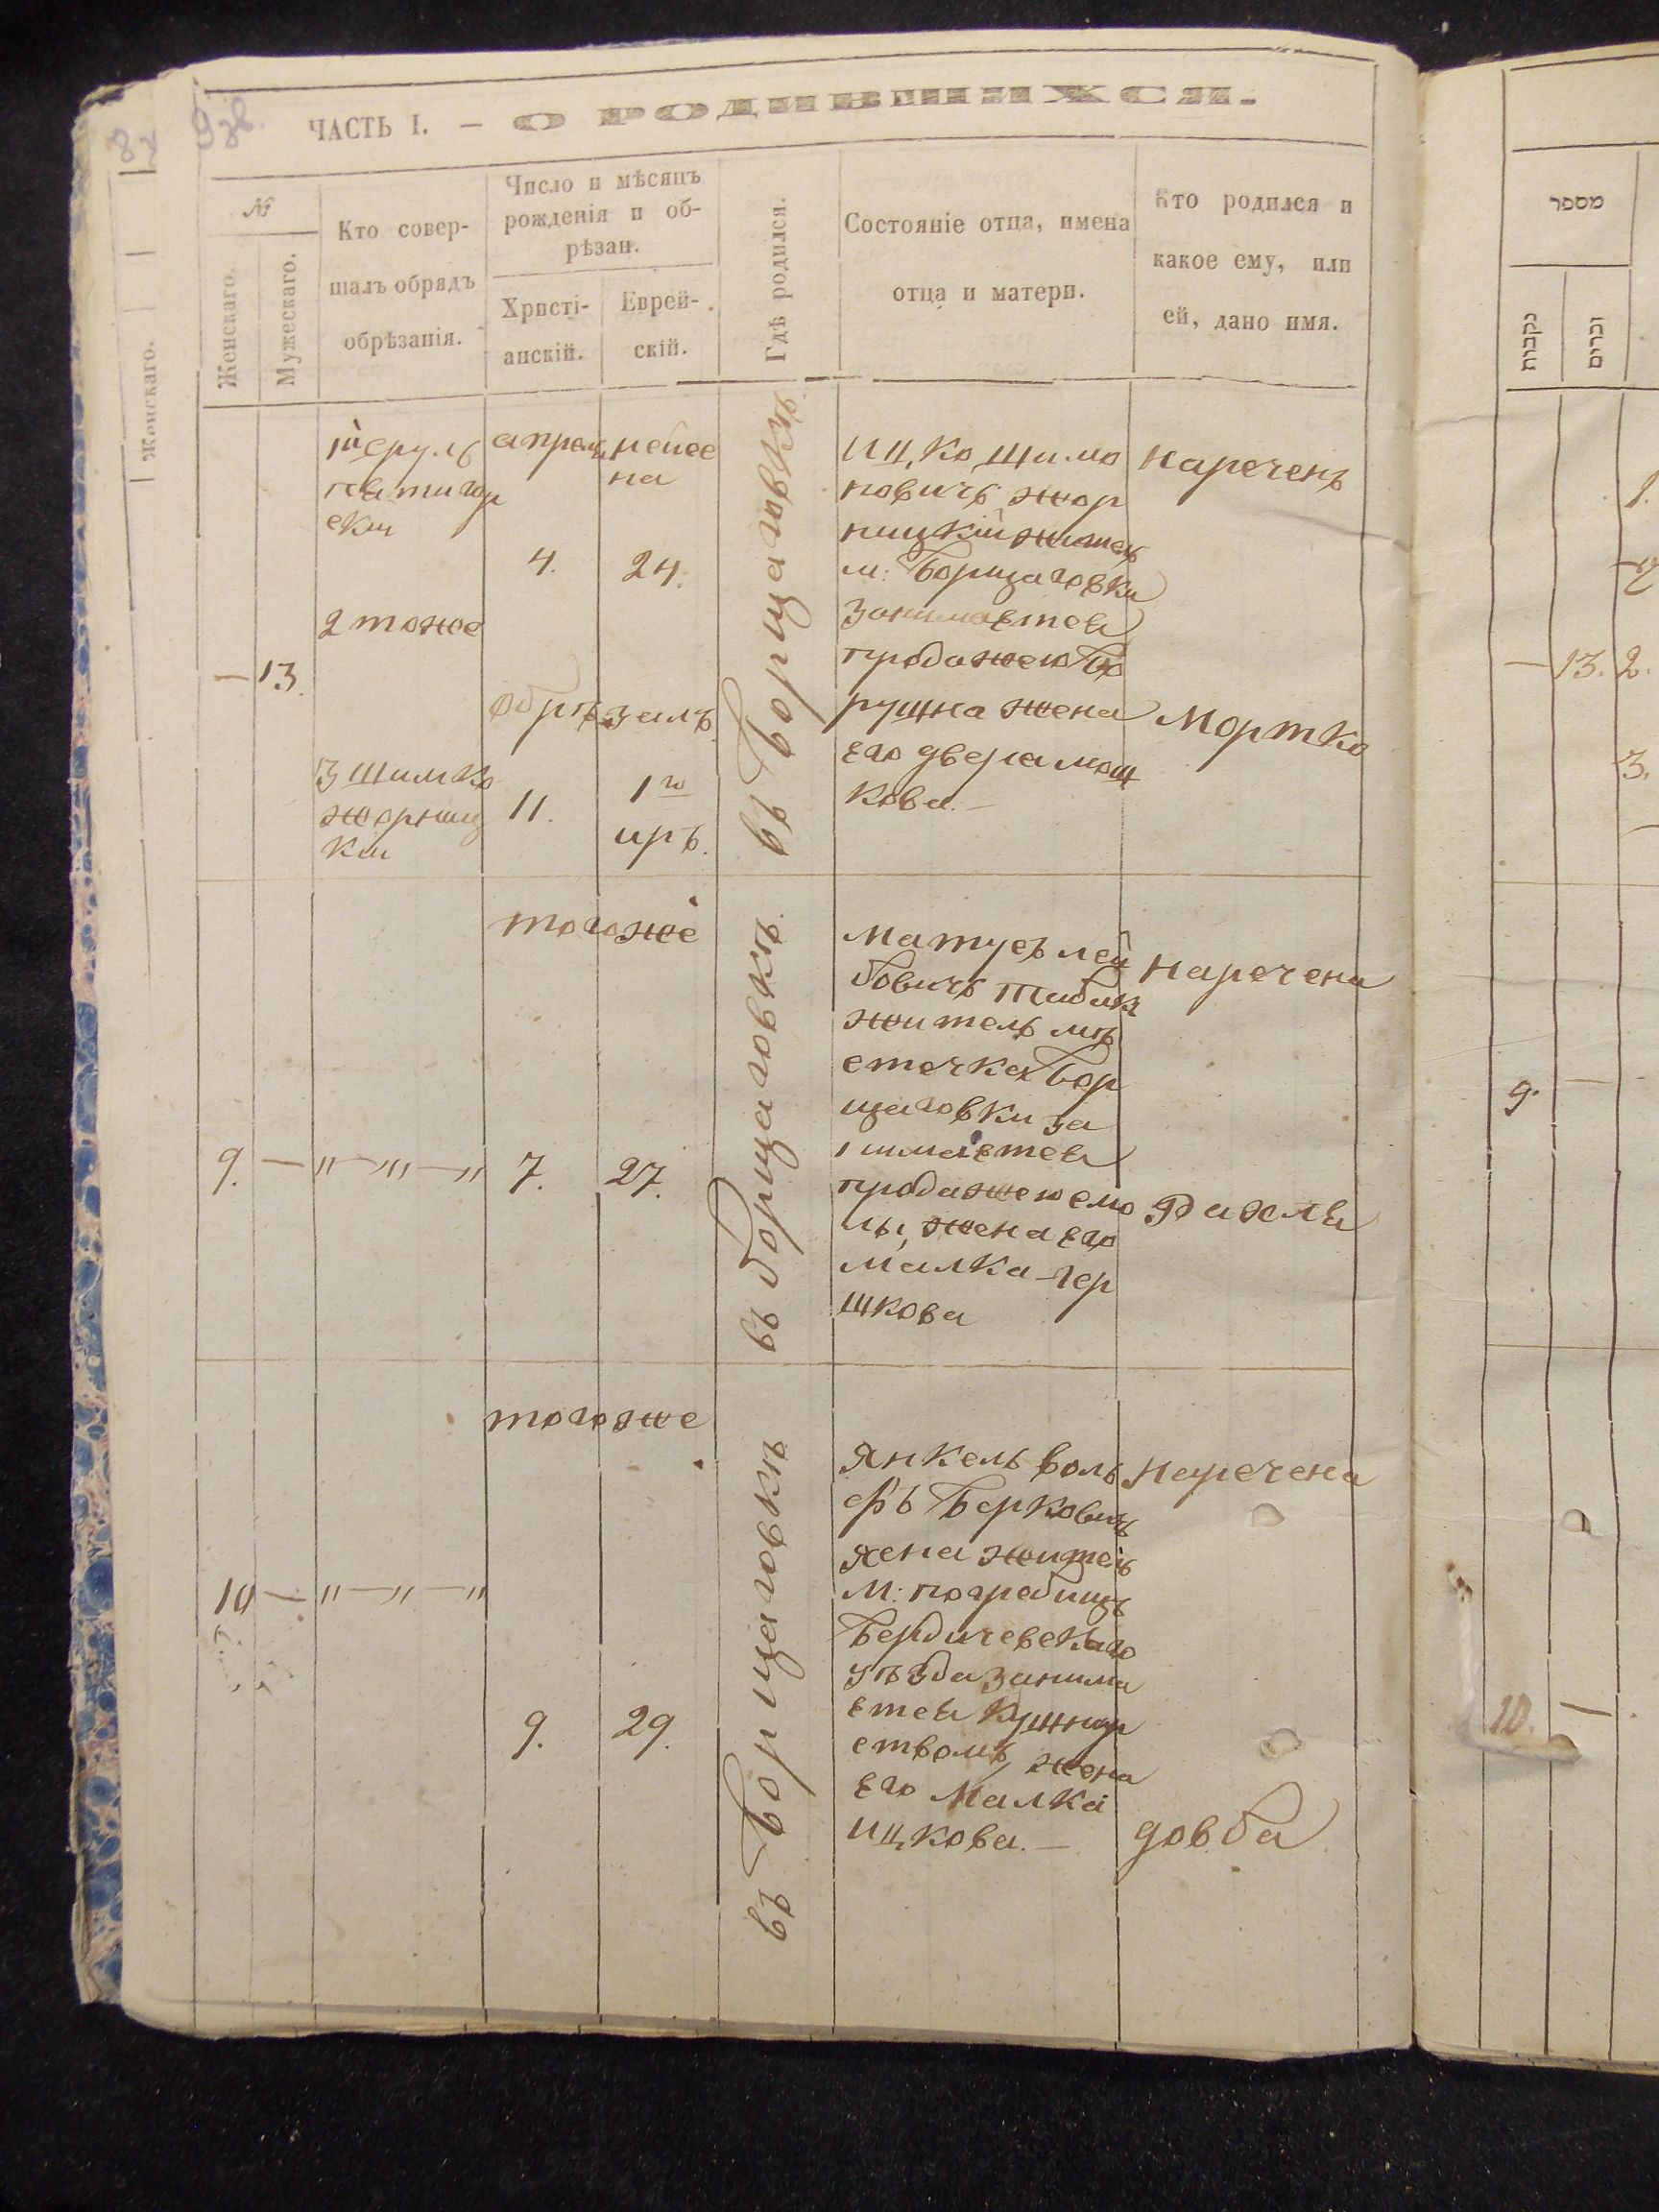 ЧАСТЬ I. — О РОДИВШИХСЯ.
№
Женскаго.
Мужескаго.
Кто совер-
шалъ обрядъ
обрѣзанія.
Число и мѣсяцъ
рожденія и об-
рѣзан.
Христі-
анскій.
Еврей-
скій.
Гдѣ родился.
Состояніе отца, имена
отца и матери.
Кто родился и
какое ему, или
ей, дано имя.
Женскаго.
— 13.
пятигор
скій
2 тоже
3 Шимко
жорниц
кій
апрель
4.
обрѣзанъ
11.
нейсе
на
24.
1го
иръ.
въ Борщаговкѣ.
Ицко Шимо
новичъ жор
ницкій житель
м: Борщаговки
занимается
продажею бо
рушна жена
его двера мош
кова. —
нареченъ
Мортко
9. —
тогоже
7. 27.
въ борщаговкѣ.
Матусъ лей
бовичъ
житель мѣ
стечка Бор
щаговки за
нимается
продажею смо
лы, жена его
малка гер
шкова
наречена
Рахля
10 —
тогоже
9. 29.
въ Борщаговкѣ
Янкель воль
фъ Берковичъ
житель
М: погребищъ
Бердичевскаго
уѣзда занима
ется кушнир
ствомъ, жена
его Малка
ицкова. —
наречена
довба
מספר
נקבות
זכרים
1.
— 13. 2.
3.
9. —
10. —